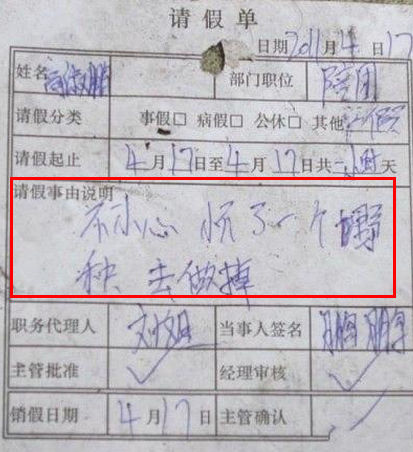 请假单
日期2011年4日17
姓名 部门职位 陪团
请假分类 事假□ 病假□ 公休□ 其他 假
请假起止 4月17日至4月17日共一小时天
请假事由说明
不小心怀了一个野
种 去做掉
职务代理人 刘姐 当事人签名
主管批准 ✓ 经理审核 ✓
销假日期 4月17日 主管确认 ✓